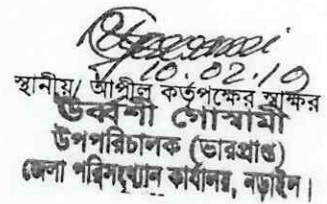 10.02.19
স্থানীয়/ আপীল কর্তৃপক্ষের স্বাক্ষর
উর্ব্বশী গোস্বামী
উপপরিচালক (ভারপ্রাপ্ত)
জেলা পরিসংখ্যান কার্যালয়, নড়াইল।